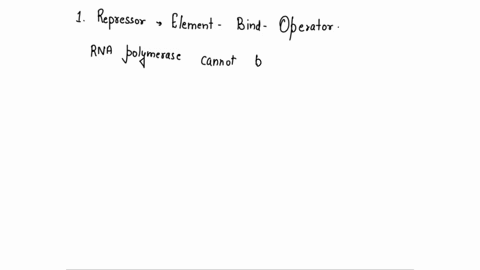 1. Repressor → Element - Bind - Operator.
RNA polymerase cannot b